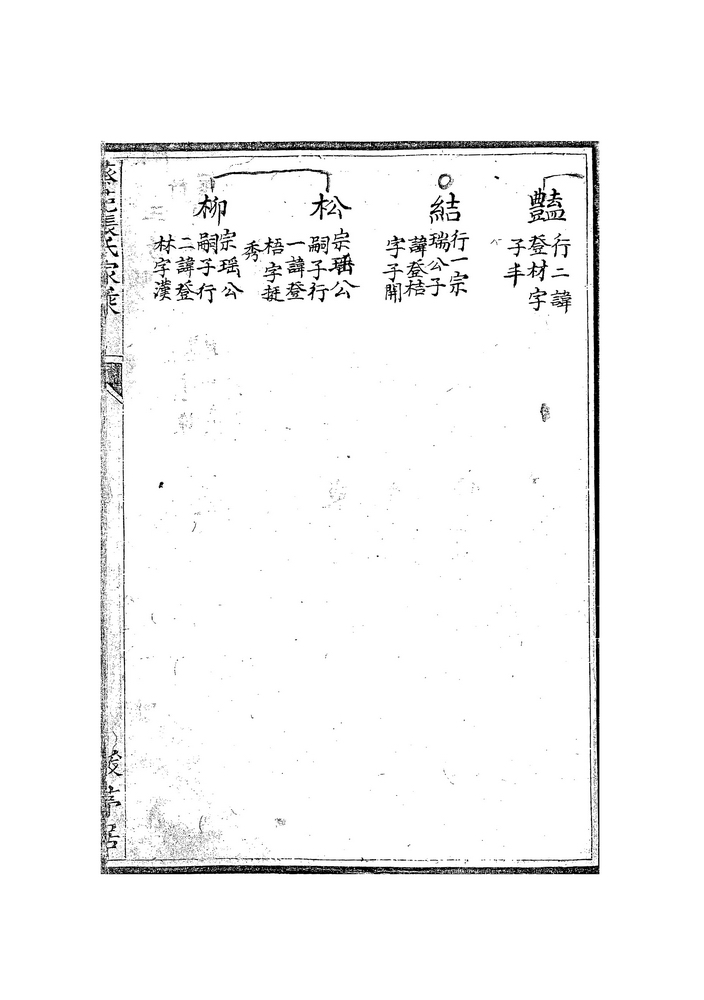 豔
行二諱
登材字
子丰
結
行一宗
瑞公子
諱登桔
字子開
松
宗瑶公
嗣子行
一諱登
梧字挺
秀
柳
宗瑶公
嗣子行
二諱登
林字漢
張氏家乘